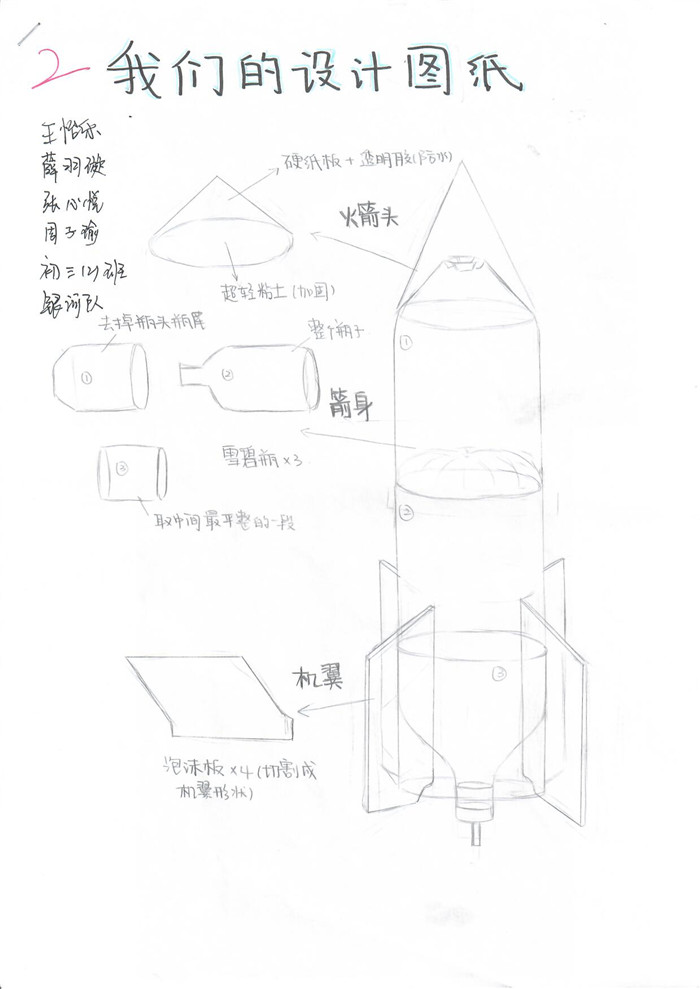 2
我们的设计图纸
王怡乐
薛羽璇
张心悦
周子瑜
初三(2)班
银河队
硬纸板+透明胶(防水)
火箭头
超轻粘土(加固)
去掉瓶头瓶尾
整个瓶子
①
②
①
箭身
雪碧瓶×3
③
取中间最平整的一段
②
机翼
③
泡沫板×4(切割成
机翼形状)